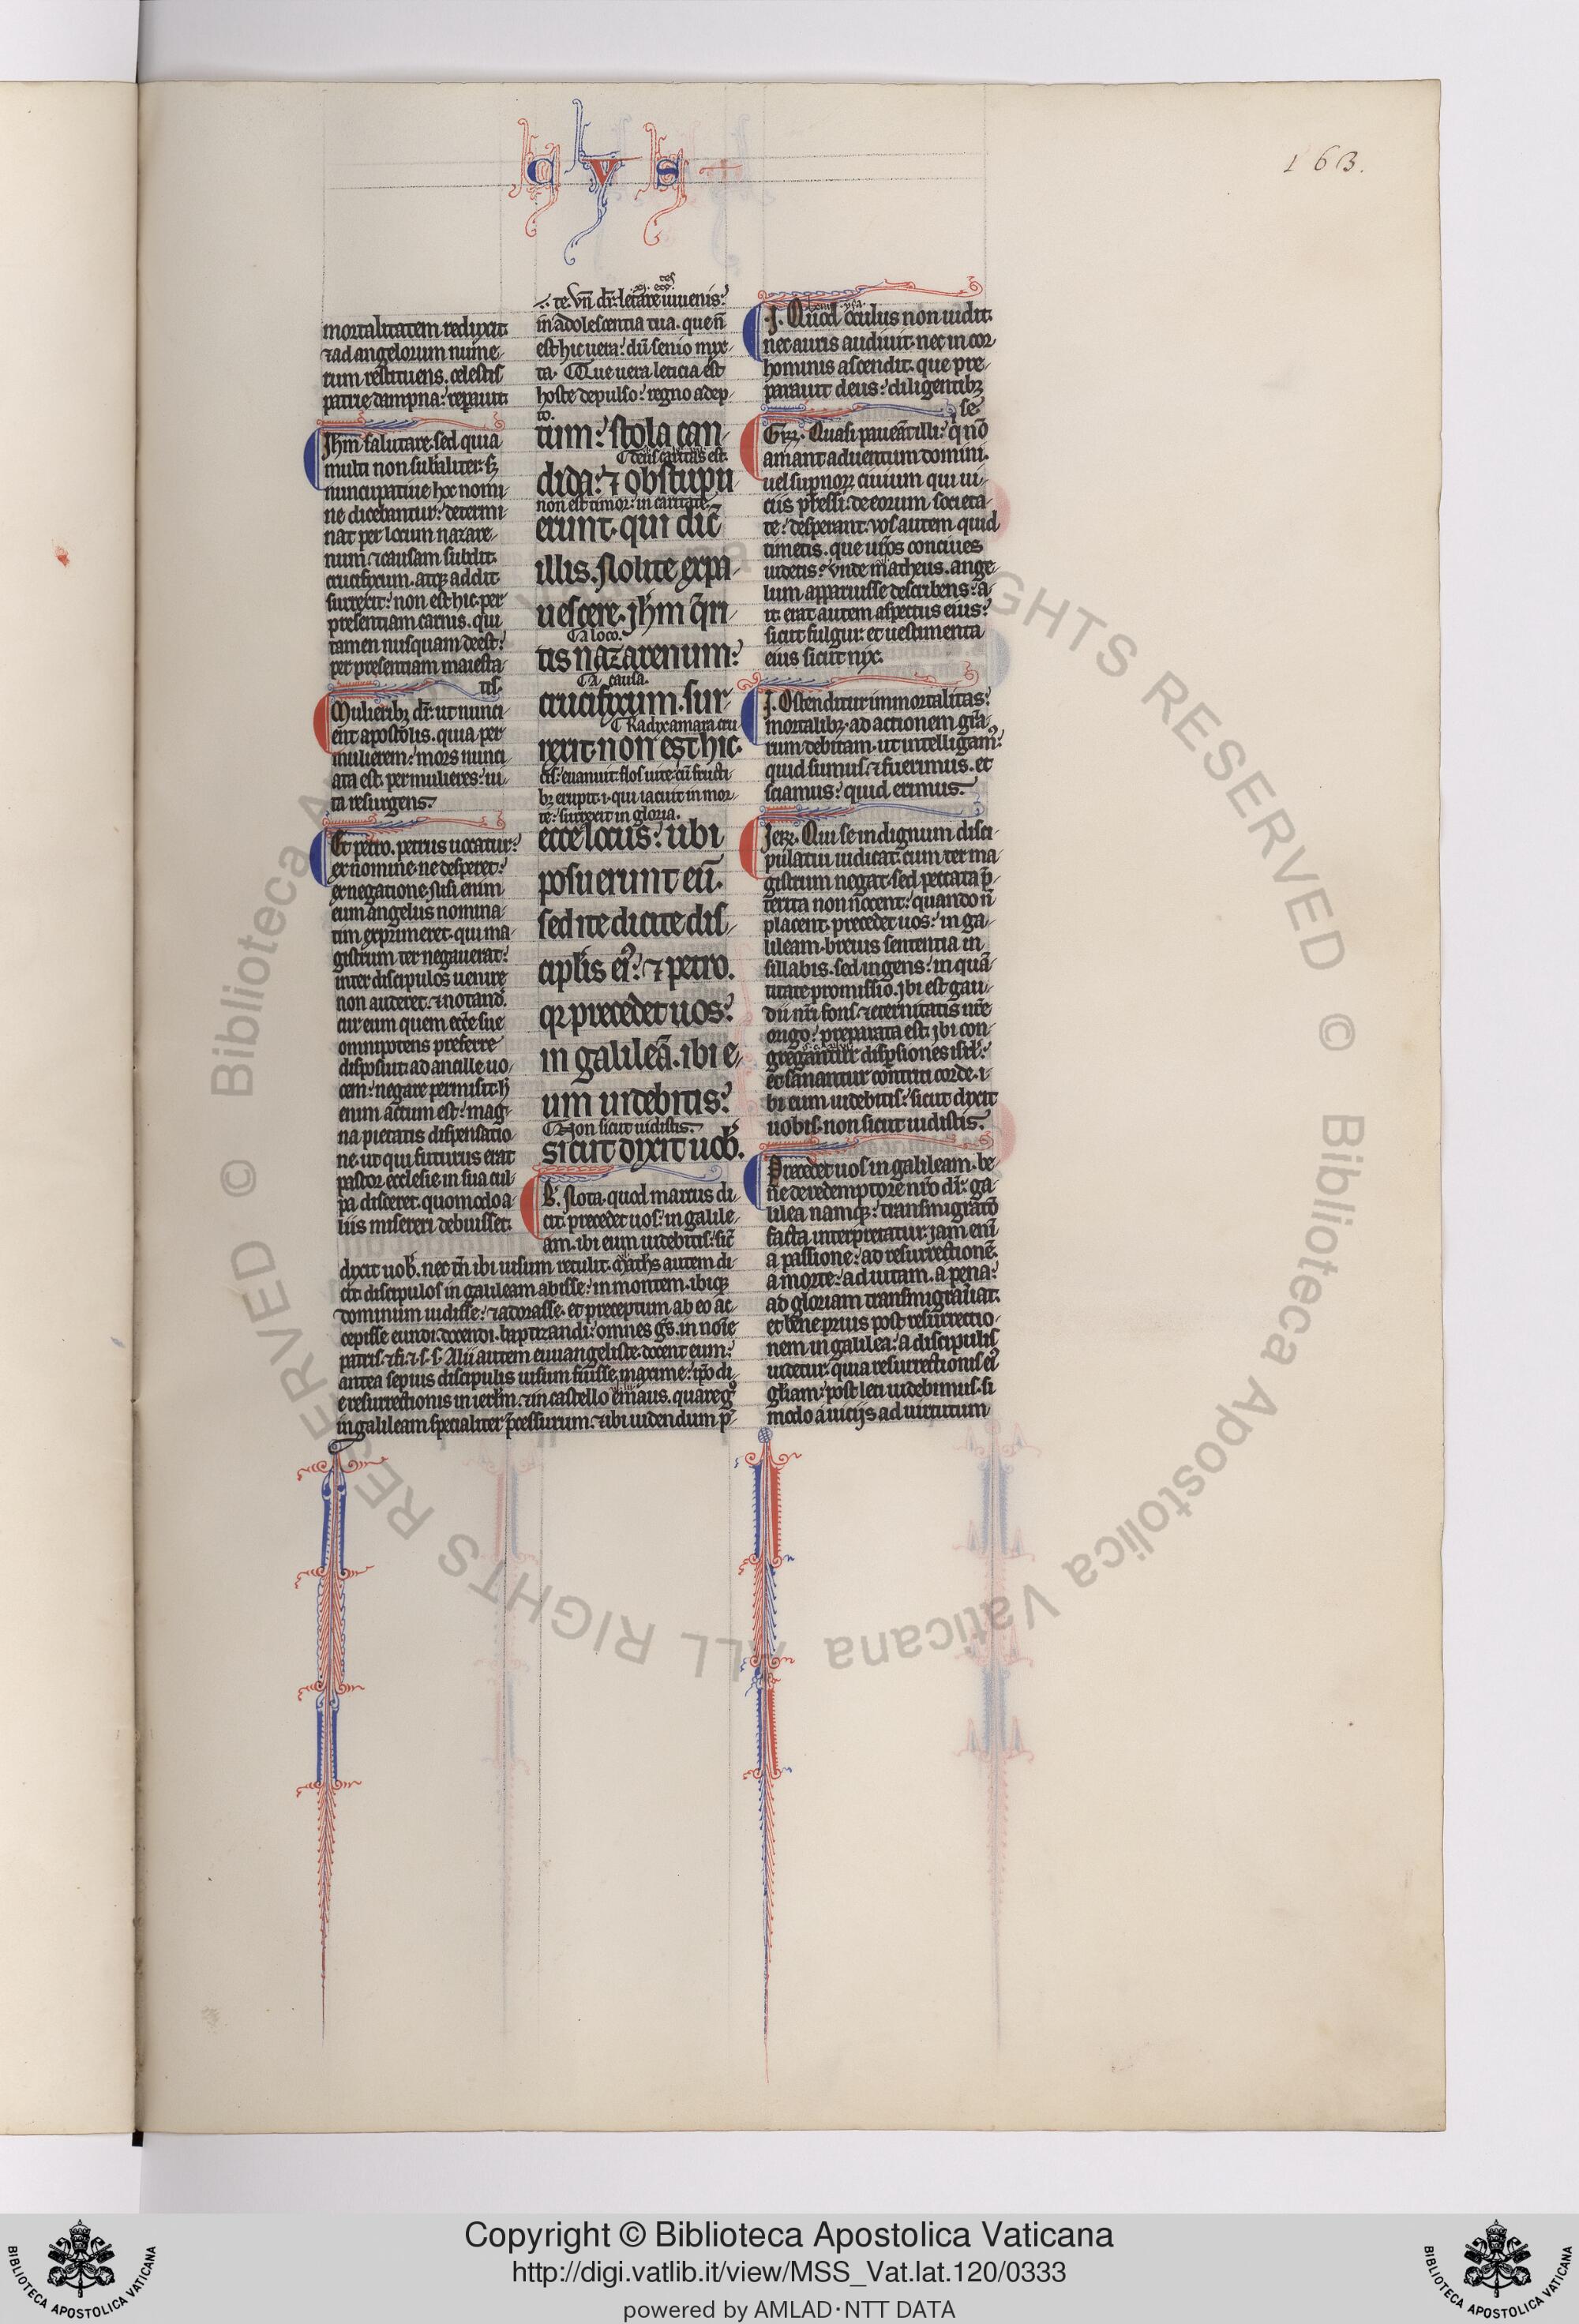 C V S
163.
mortalitatem reduxit
⁊ ad angelorum nume
rum restituens. celestis
patrie dampna: reparauit
Jhm salutare. sed quia
multi non substantialiter. sꝫ
nuncupatiue hoc nomi
ne dicebantur: determi
nat per locum nazare
num. ⁊ causam subdit
crucifixum. atqꝫ addit
surrexit: non est hic. per
presentiam carnis. qui
tamen nusquam deest:
per presentiam maiesta
tis.
Mulieribꝫ dr̄: ut nunci
ent apostolis. quia per
mulierem: mors nunci
ata est. per mulieres: ui
ta resurgens.
Et petro. petrus uocatur:
ex nomine. ne desperet:
ex negatione. Nisi enim
eum angelus nomina
tim exprimeret. qui ma
gistrum ter negauerat:
inter discipulos uenire
non auderet. ⁊ notand.
cur eum quem ecc̄e sue
omnipotens preferre
disposuit: ad ancille uo
cem: negare permisit. h
enim actum est: mag
na pietatis dispensatio
ne. ut qui futurus erat
pastor ecclesie in sua cul
pa disceret. quomodo a
liis misereri debuisset.
te. vn̄ dr̄: letare iuuenis:
in adolescentia tua. que n̄
est hic uera: dū senio mixe
ta. Tue uera leticia est
hoste depulso: regno adep
to.
tum: stola can
Deus caritas est.
dida: ⁊ obstupu
non est timor: in caritate.
erunt. qui dic̄
illis. Nolite expa
uescere. jhm q̄ri
A loco.
tis nazarenum:
A causa.
crucifixum. sur
Radix amara cru
rexit non est hic.
cis: euanuit. flos uite cū fructi
bꝫ erupit. i. qui iacuit in mor
te: surrexit in gloria.
ecce locus: ubi
posuerunt eū.
sed ite dicite dis
ciplis ei: ⁊ petro.
qꝛ precedet uos:
in galileā. ibi e
um uidebitis:
Non sicut uidistis.
sicut dixit uob.
B. Nota. quod marcus di
cit. precedet uos: in galile
am. ibi eum uidebitis: sic̄
dixit uob. nec tn̄ ibi uisum retulit. Math's autem di
cit discipulos in galileam abisse: in montem. ibiqꝫ
dominum uidisse: ⁊ adorasse. et preceptum ab eo ac
cepisse eundi. docendi. baptizandi: omnes gs. in noīe
patris. ⁊ fi. ⁊ s. s. Alii autem euuangeliste. docent eum:
antea sepius discipulis uisum fuisse. maxime: ipo di
e resurrectionis in ierlm. ⁊ in castello emaus. quare g
in galileam specialiter p̄cessurum. ⁊ ibi uidendum p
I. Quod oculus non uidit.
nec auris audiuit. nec in cor
hominis ascendit. que pre
parauit deus: diligentibꝫ
se.
Grꝫ. Quasi paueāt illi: q nō
amant aduentum domini.
uel supnoꝝ ciuium qui ui
ciis p̄ssi: de eorum societa
te: desperant. uos autem quid
timetis. que ur̄os conciues
uidetis: vnde matheus. ange
lum apparuisse describens: a
it. erat autem aspectus eius:
sicut fulgur: et uestimenta
eius sicut nix.
I. Ostenditur immortalitas:
mortalibꝫ. ad actionem gr̄a
rum debitam. ut intelligam:
quid sumus. ⁊ fuerimus. et
sciamus: quid erimus.
Jerꝫ. Qui se indignum disci
pulatui iudicat. cum ter ma
gistrum negat. sed peccata p̄
terita non nocent: quando n̄
placent. precedet uos: in ga
lileam. breuis sententia in
sillabis. sed ingens: in quā
titate promissio. jbi est gau
dii nr̄i fons. ⁊ eternitatis uite
origo: preparata est. jbi con
gregantur dispsiones isrl:
et sanantur contriti corde. i
bi eum uidebitis: sicut dixit
uobis. non sicut uidistis.
Precedet uos in galileam. be
ne de redemptore nr̄o dr̄: ga
lilea namqꝫ: transmigratō
facta interpretatur. jam enī
a passione: ad resurrectionē.
a morte: ad uitam. a pena:
ad gloriam transmigrauerat.
et bene prius post resurrectio
nem in galilea: a discipulis
uidetur. quia resurrectionis ei
gl'iam: post leti uidebimus. si
modo a uicijs ad uirtutum
© Biblioteca Apostolica Vaticana ALL RIGHTS RESERVED
Copyright © Biblioteca Apostolica Vaticana
http://digi.vatlib.it/view/MSS_Vat.lat.120/0333
powered by AMLAD·NTT DATA
BIBLIOTECA APOSTOLICA VATICANA
BIBLIOTECA APOSTOLICA VATICANA